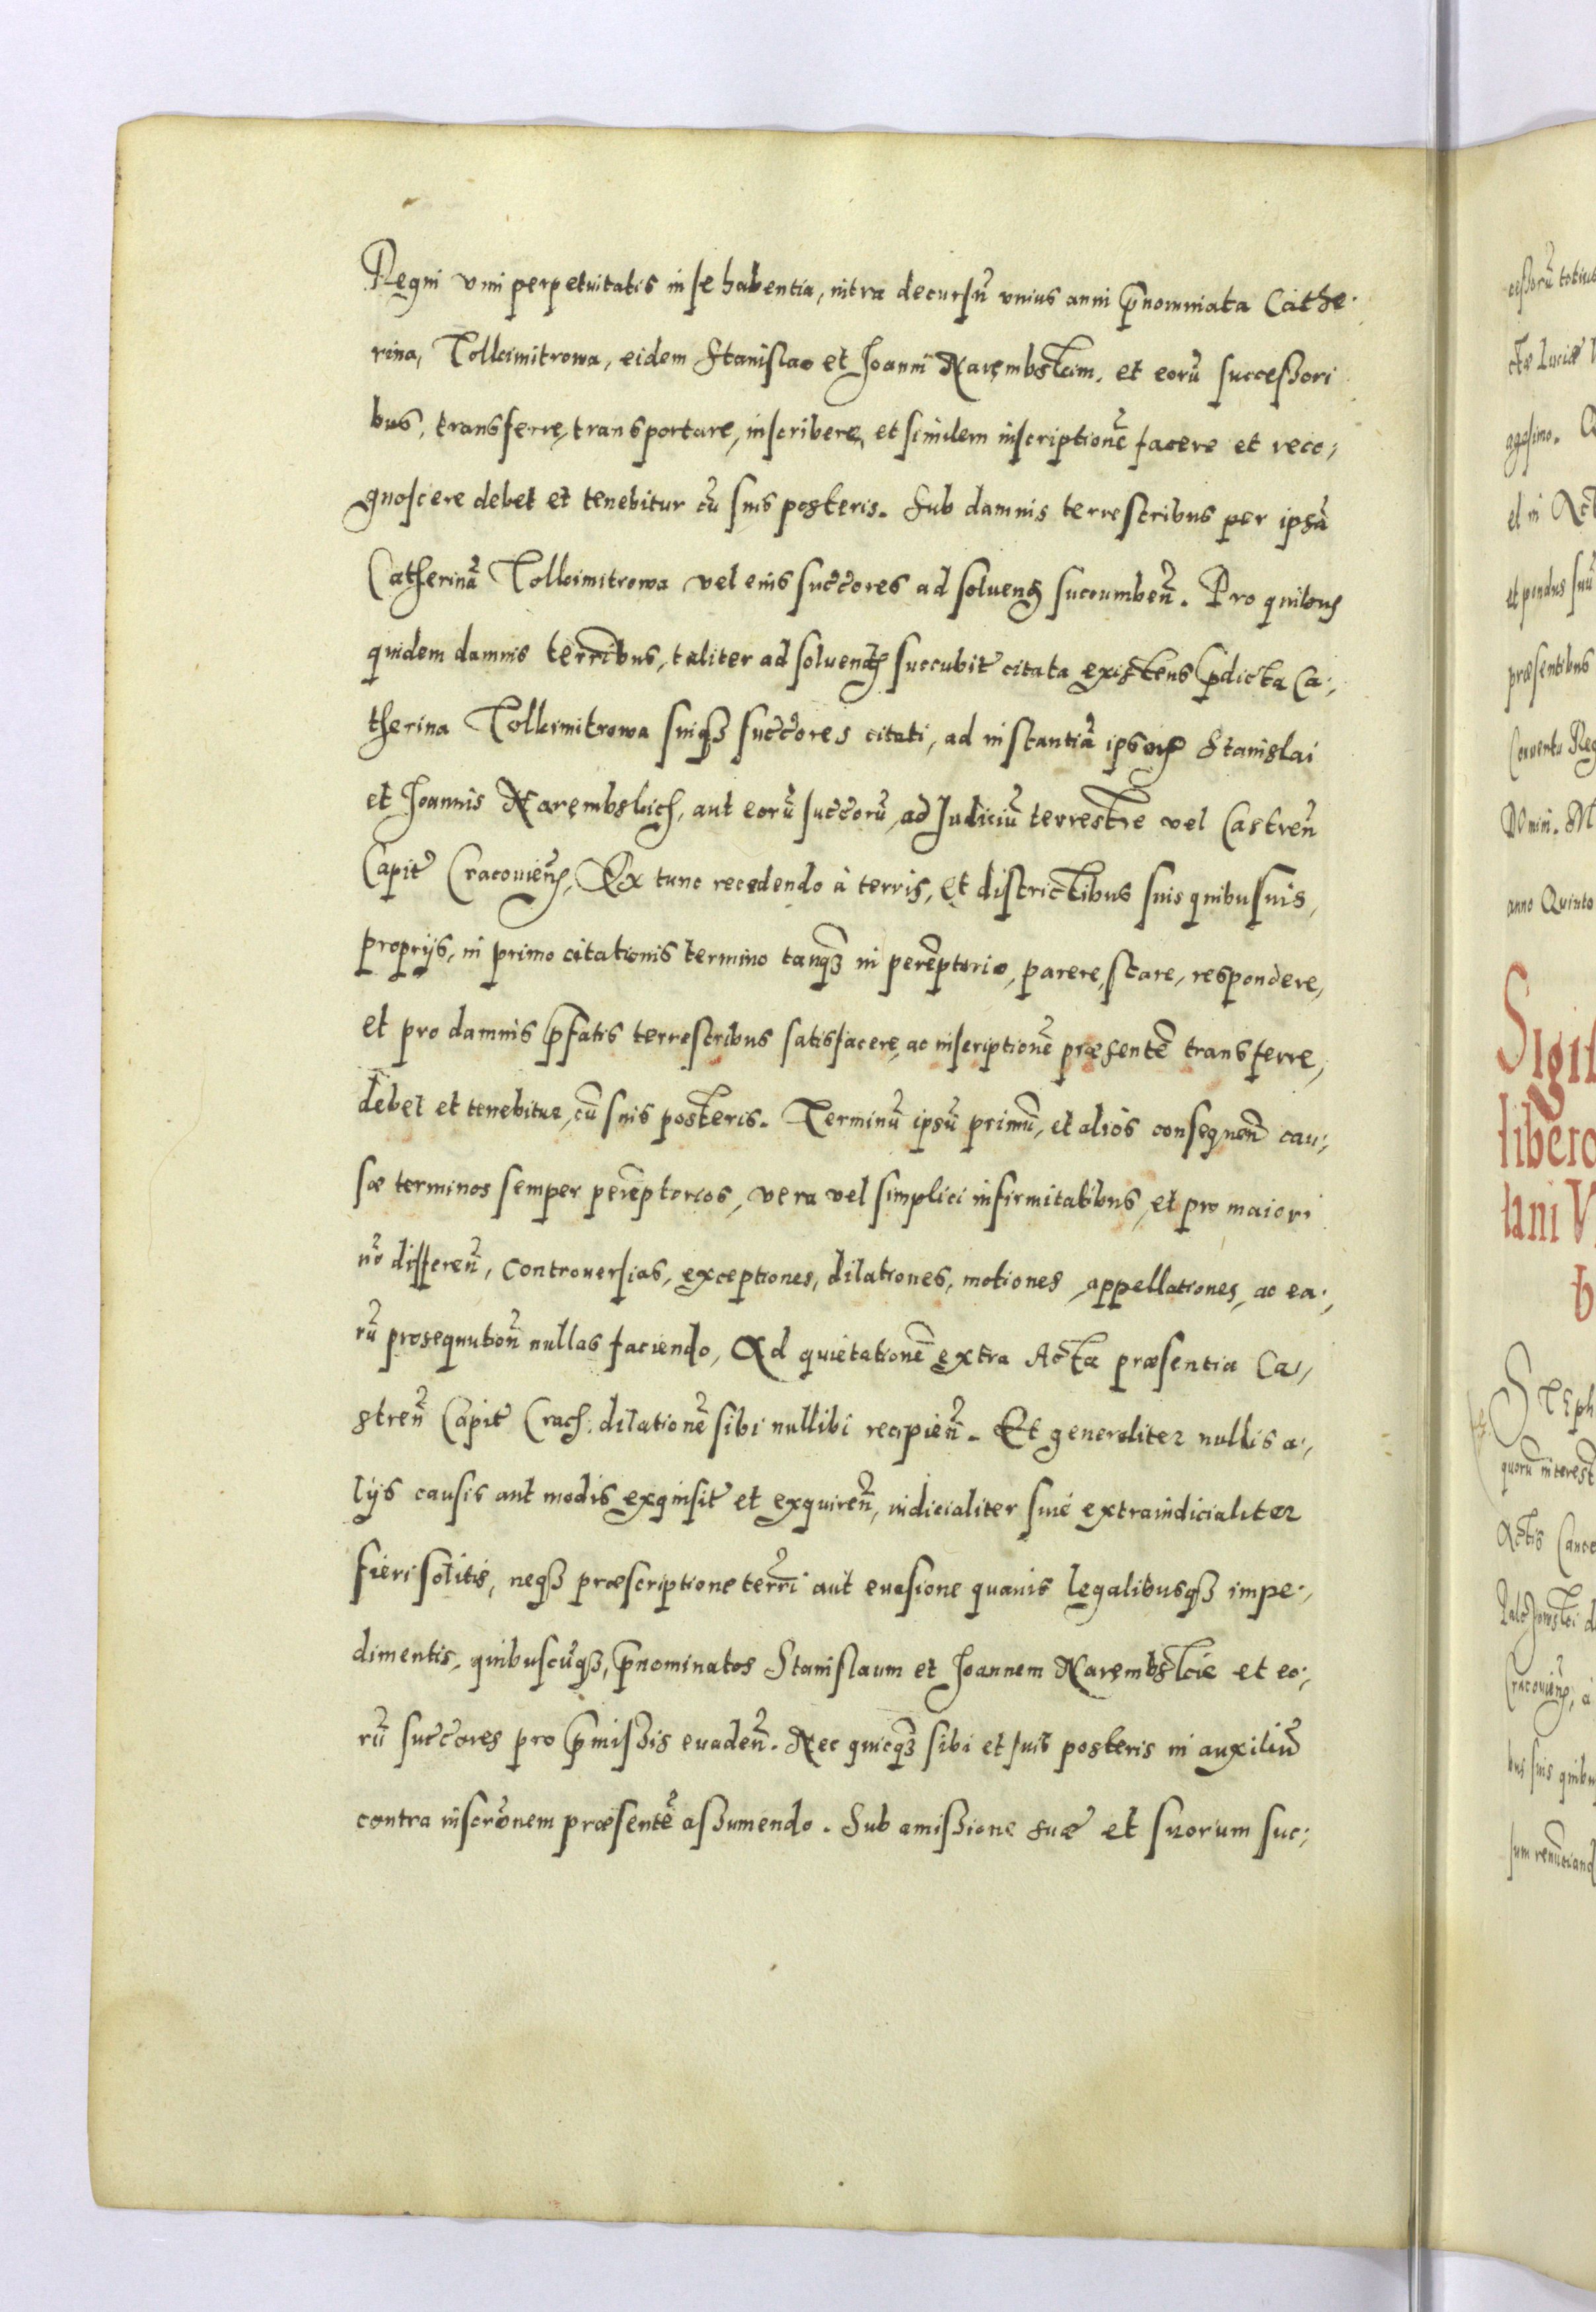 Regni vim perpetuitatis in se habentia, intra decursū vnius anni p̄nominata Cathe-
rina, Tollcimitrowa, eidem Stanislao et Joanni Narębskim, et eorū succeßori
bus, transferre, transportare, inscribere, et similem inscriptionē facere et reco-
gnoscere debet et tenebitur cū suis posteris. Sub damnis terrestribus per ipsā
Catherinā Tollcimitrowa vel eius succ̄ores ad soluenđ succumbeñ. Pro quibus
quidem damnis terribus, taliter ad soluenđ succubit̄ citata existens p̄dicta Ca-
therina Tollcimitrowa suiqȝ succ̄ores citati, ad instantiā ipsorꝝ Stanislai
et Joannis Narembskich, aut eorū succ̄orū, ad Judiciū terrestre vel Castreñ
Capit̄ Cracouieñ, Ex tunc recedendo à terris, et districtibus suis quibusuis,
proprijs, in primo citationis termino tanqȝ in perēptorio, parere, stare, respondere,
et pro damnis p̄fatis terrestribus satisfacere, ac inscriptionē præsentē transferre,
debet et tenebitur, cū suis posteris. Terminū ipsū primū, et aliòs consequeñ cau-
sæ terminos semper perēptorios, vera vel simplici infirmitatibus, et pro maiori
nō differeñ, controuersias, exceptiones, dilationes, motiones, appellationes, ac ea-
rū prosequutioñ nullas faciendo, Ad quietationē extra Acta præsentia Ca-
streñ Capit̄ Crac̄. dilationē sibi nullibi recipieñ. Et generaliter nullis a-
lijs causis aut modis exquisit̄ et exquireñ, iudicialiter siue extraiudicialiter
fieri solitis, neqȝ præscriptione terrī aut euasione quauis legalibusqȝ impe-
dimentis, quibuscūqȝ, p̄nominatos Stanislaum et Joannem Narembskie et eo-
rū succ̄ores pro p̄mißis euadeñ. Nec quicqȝ sibi et suis posteris in auxiliū
contra inscrōnem præsentē aßumendo. Sub amißione suæ et suorum suc-